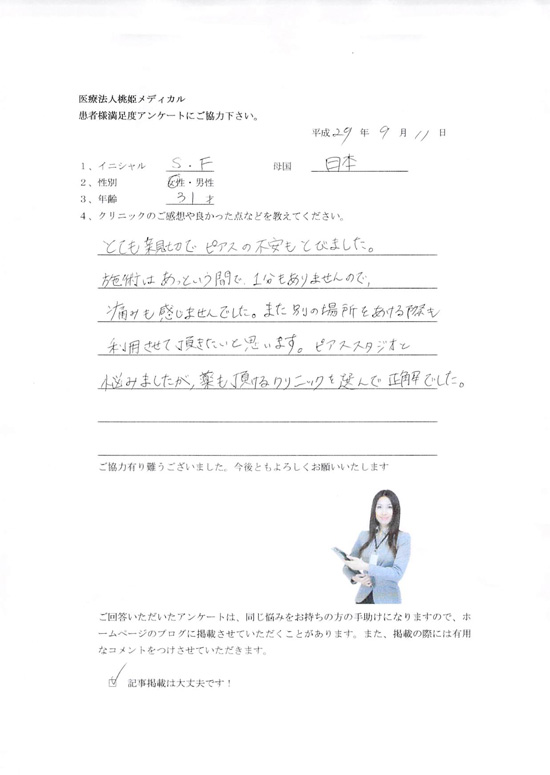 医療法人桃姫メディカル
患者様満足度アンケートにご協力下さい。
平成 29 年 9 月 11 日
1、イニシャル S.F 母国 日本
2、性別 女性・男性
3、年齢 31 才
4、クリニックのご感想や良かった点などを教えてください。
とても親切で ピアスの不安もとびました。
施術はあっという間で、1分もありませんので、
痛みも感じませんでした。また別の場所をあける際も
利用させて頂きたいと思います。ピアススタジオと
悩みましたが、薬も頂けるクリニックを選んで正解でした。
ご協力有り難うございました。今後ともよろしくお願いいたします
ご回答いただいたアンケートは、同じ悩みをお持ちの方の手助けになりますので、ホ
ームページのブログに掲載させていただくことがあります。また、掲載の際には有用
なコメントをつけさせていただきます。
記事掲載は大丈夫です！